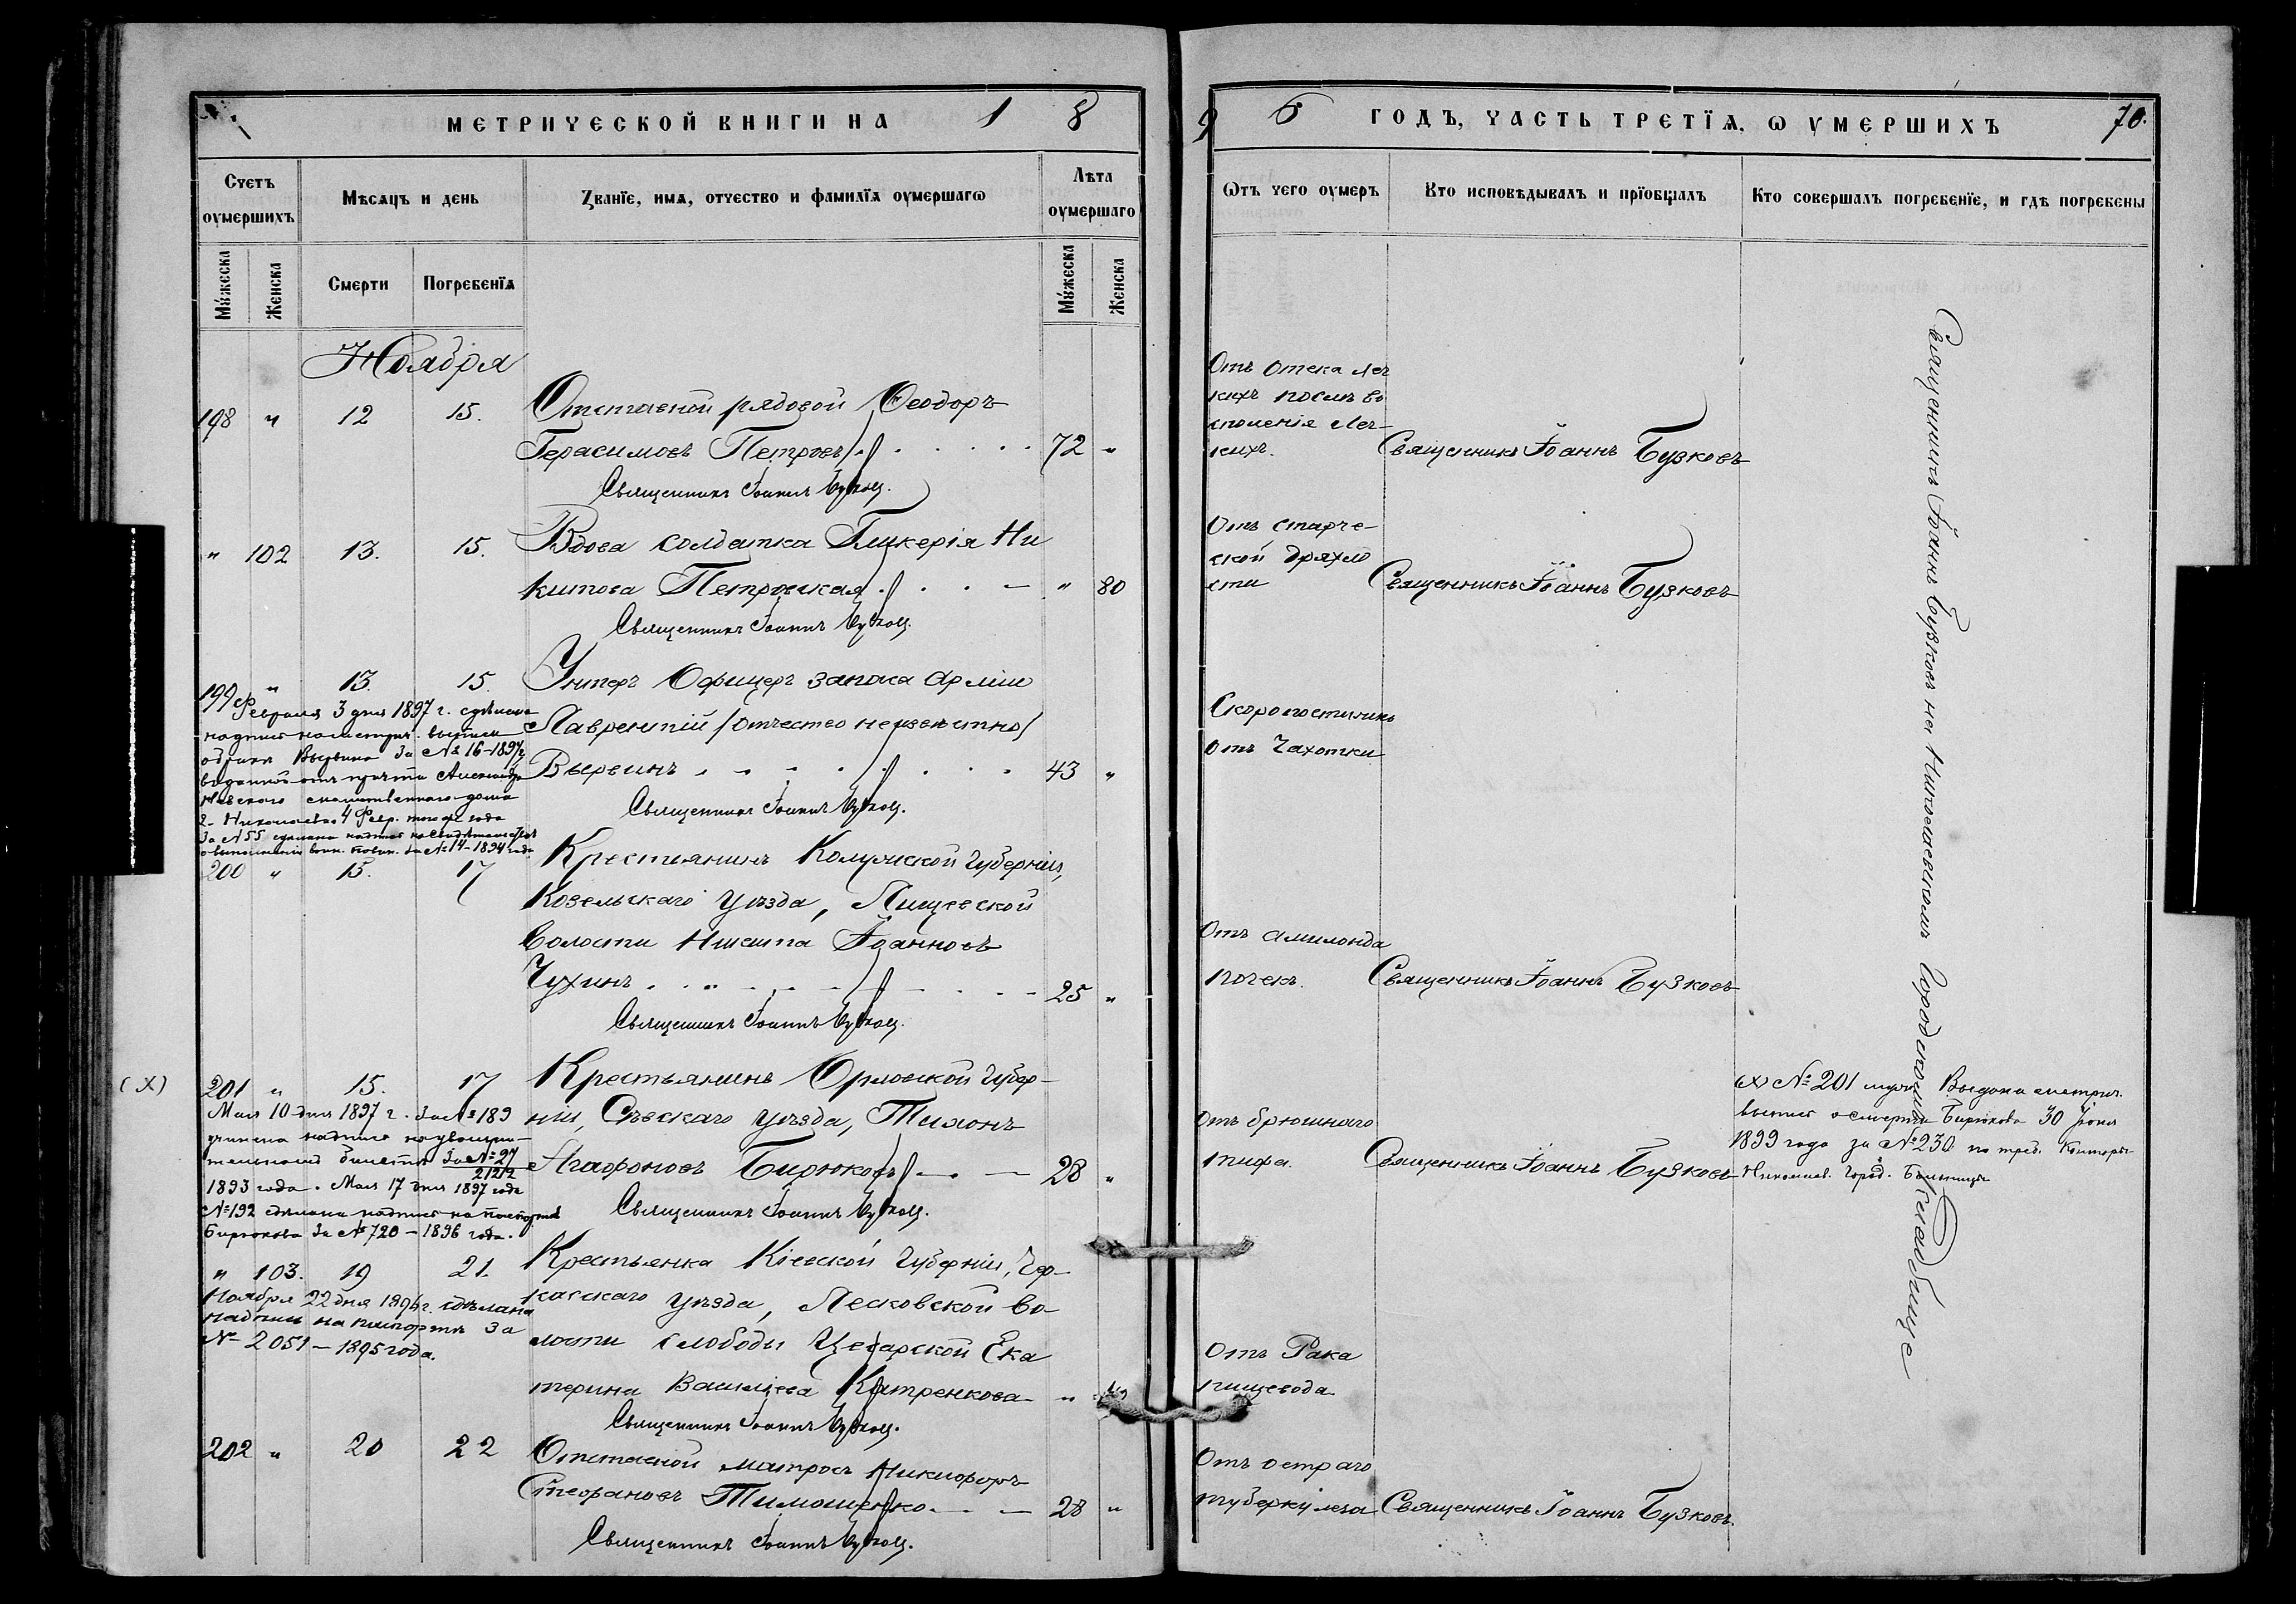 МЕТРИЧЕСКОЙ КНИГИ НА 1 8
9 6 ГОДЪ, ЧАСТЬ ТРЕТІЯ, Ѡ УМЕРШИХЪ 70.
Счетъ оумершихъ
Мѣсяцъ и день
Званіе, имя, отчество и фамилія оумершагѡ
Лѣта оумершаго
Ѿтъ чего оумеръ
Кто исповѣдывалъ и пріобщалъ
Кто совершалъ погребеніе, и гдѣ погребены
Мужеска
Женска
Смерти
Погребенія
Мужеска
Женска
Ноября
198 " 12 15. Отставной рядовой Ѳеодоръ
Герасимовъ Петровъ 72 "
Священникъ Іоаннъ Бузковъ.
Отъ отека лег
кихъ послѣ во
спаленія лег-
кихъ.
Священникъ Іоаннъ Бузковъ
" 102 13. 15. Вдова солдатка Гликерія Ни
китова Петровская " 80
Священникъ Іоаннъ Бузковъ.
Отъ старче-
ской дряхло
сти
Священникъ Іоаннъ Бузковъ
199 " 13. 15. Унтеръ Офицеръ запаса арміи
Лаврентій /отчество неизвѣстно/
Вырвинъ 43 "
Священникъ Іоаннъ Бузковъ.
Февраля 3 дня 1897 г. сдѣлана
надпись на метрич. выписи
о бракѣ Вырвина за № 16-1897 г.
выданной отъ причта Александро
Невского
г. Николаева 4 Февр. того же года
за № 55 сдѣлана надпись на свидѣтельствѣ
о выполненіи воин. повин. за № 14-1894 года
Скоропостижно
отъ Чахотки
200 " 15. 17 Крестьянинъ Калужской губерніи,
Козельскаго уѣзда,
волости Никита Іоанновъ
Чухинъ 25 "
Священникъ Іоаннъ Бузковъ.
Отъ амилоида
почекъ.
Священникъ Іоаннъ Бузковъ
(X) 201 " 15. 17 Крестьянинъ Орловской губер-
ніи, Сѣвскаго уѣзда, Тихонъ
Агафоновъ Бирюковъ 28 "
Священникъ Іоаннъ Бузковъ.
Мая 10 дня 1897 г. за № 189
учинена надпись на увольни-
тельномъ билетѣ за № 27
2122
1893 года. Мая 17 дня 1897 года
№ 192 сдѣлана надпись на паспортѣ
Бирюкова за № 720 – 1896 года.
Отъ брюшнаго
тифа.
Священникъ Іоаннъ Бузковъ
(X) № 201 муж. Выдана метрич.
выпись о смерти Бирюкова 30 Іюня
1899 года за № 230 по треб. Конторы
Николаев. Город. Больницы
" 103. 19 21. Крестьянка Кіевской губерніи, Чер-
касскаго уѣзда, Лесковской во
лости слободы Цесарской Ека
терина Васильева Катренкова "
Священникъ Іоаннъ Бузковъ.
Ноября 22 дня 1896 г. сдѣлана
надпись на паспортѣ за
№ 2051 – 1895 года.
Отъ Рака
пищевода
202 " 20 22 Отставной матросъ Никифоръ
Стефановъ Тимошенко 28 "
Священникъ Іоаннъ Бузковъ.
Отъ остраго
туберкулеза
Священникъ Іоаннъ Бузковъ.
Священникъ Іоаннъ Бузковъ на Николаевскомъ городскомъ кладбище